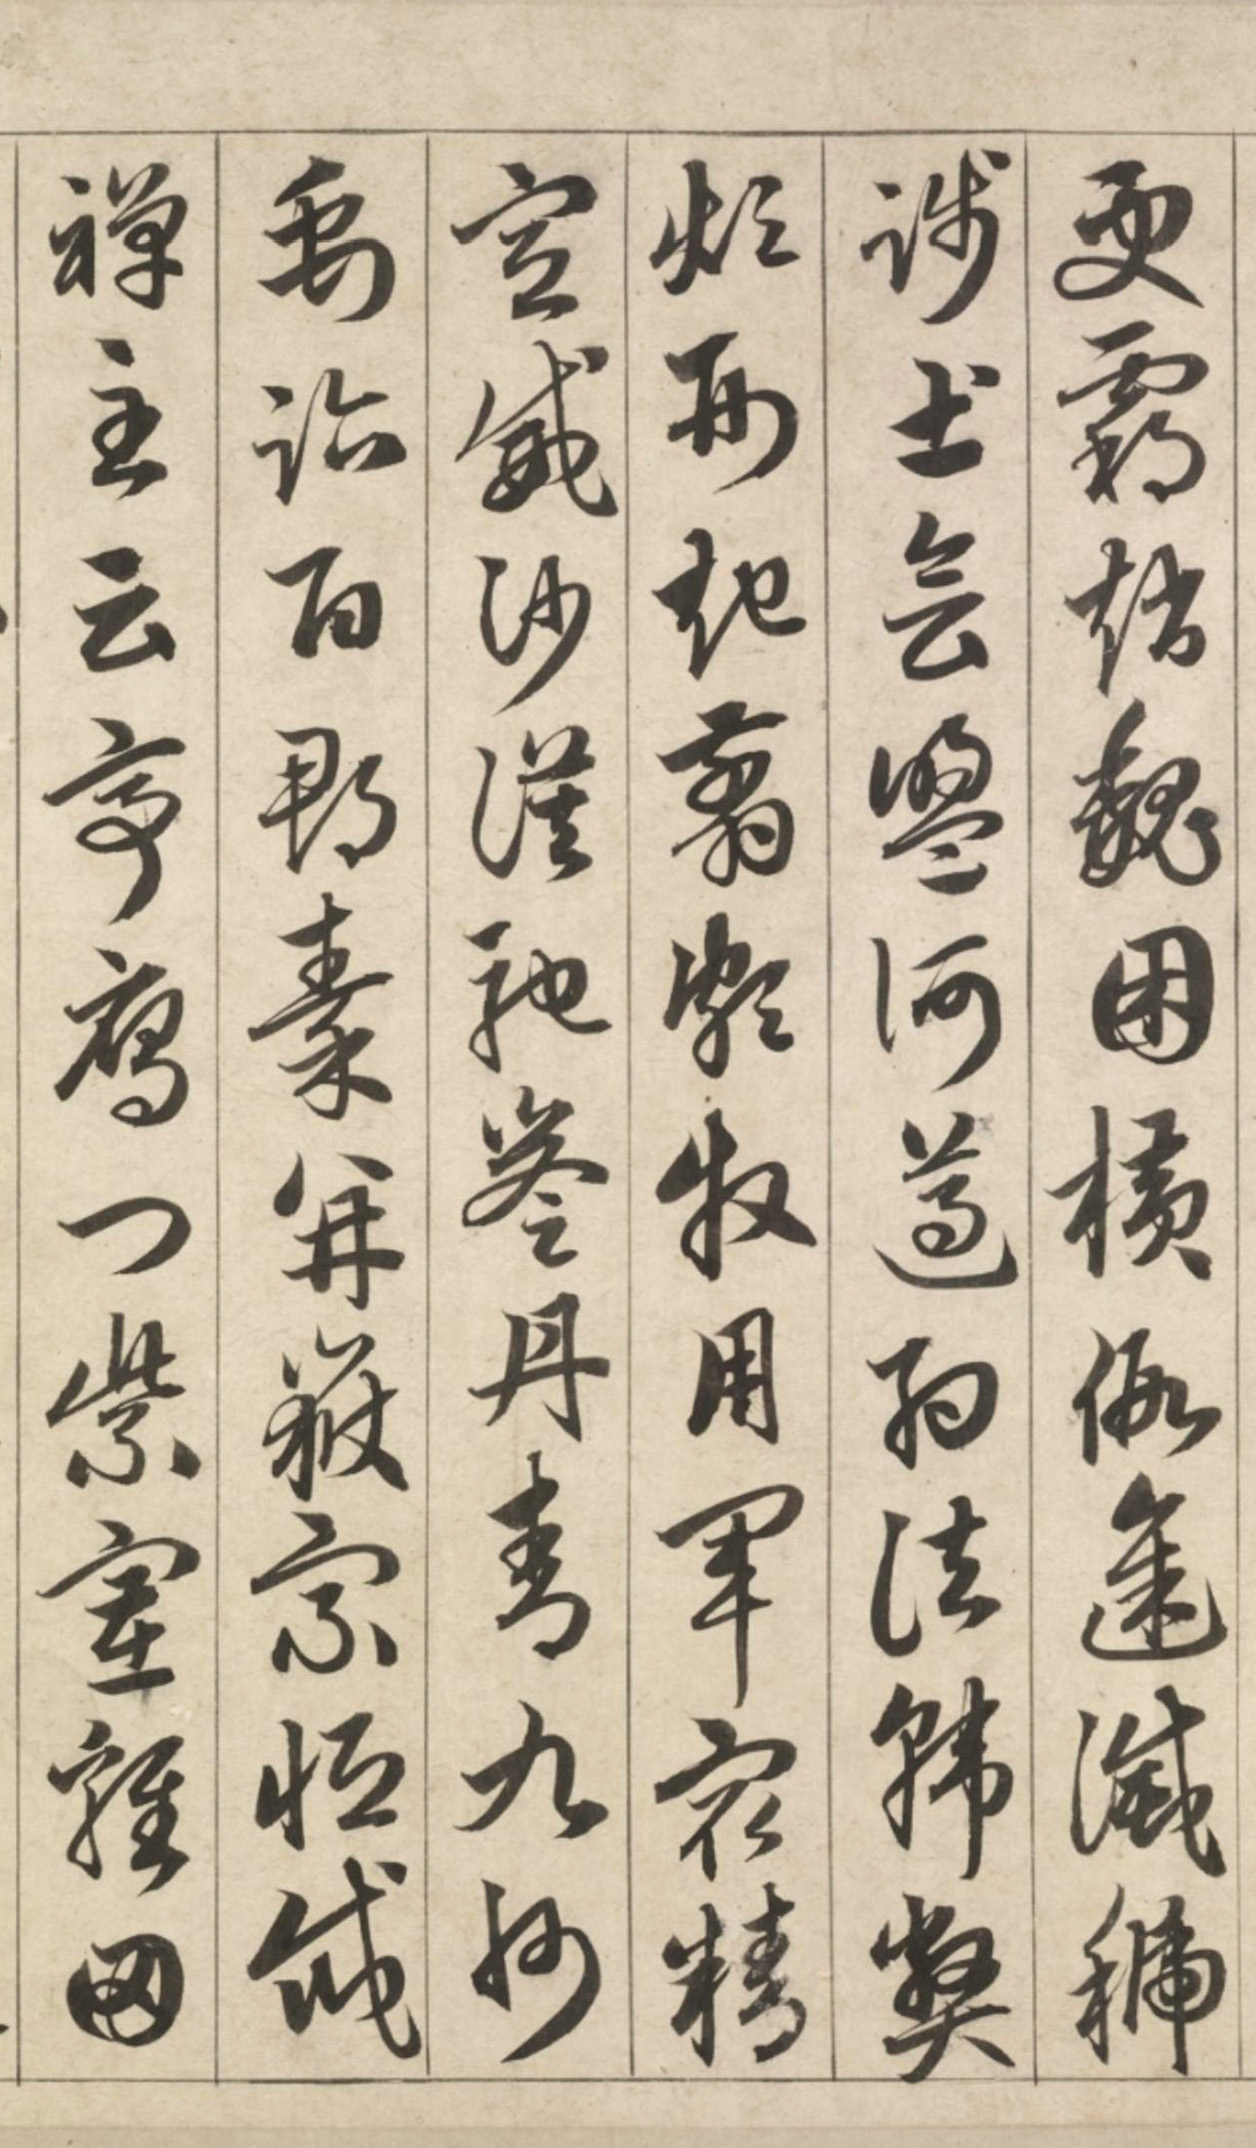 更霸趙魏困橫假途滅虢
踐土會盟何遵約法韓弊
煩刑起翦頗牧用軍最精
宣威沙漠馳譽丹青九州
禹跡百郡秦并嶽宗恒岱
禪主云亭鴈門紫塞雞田